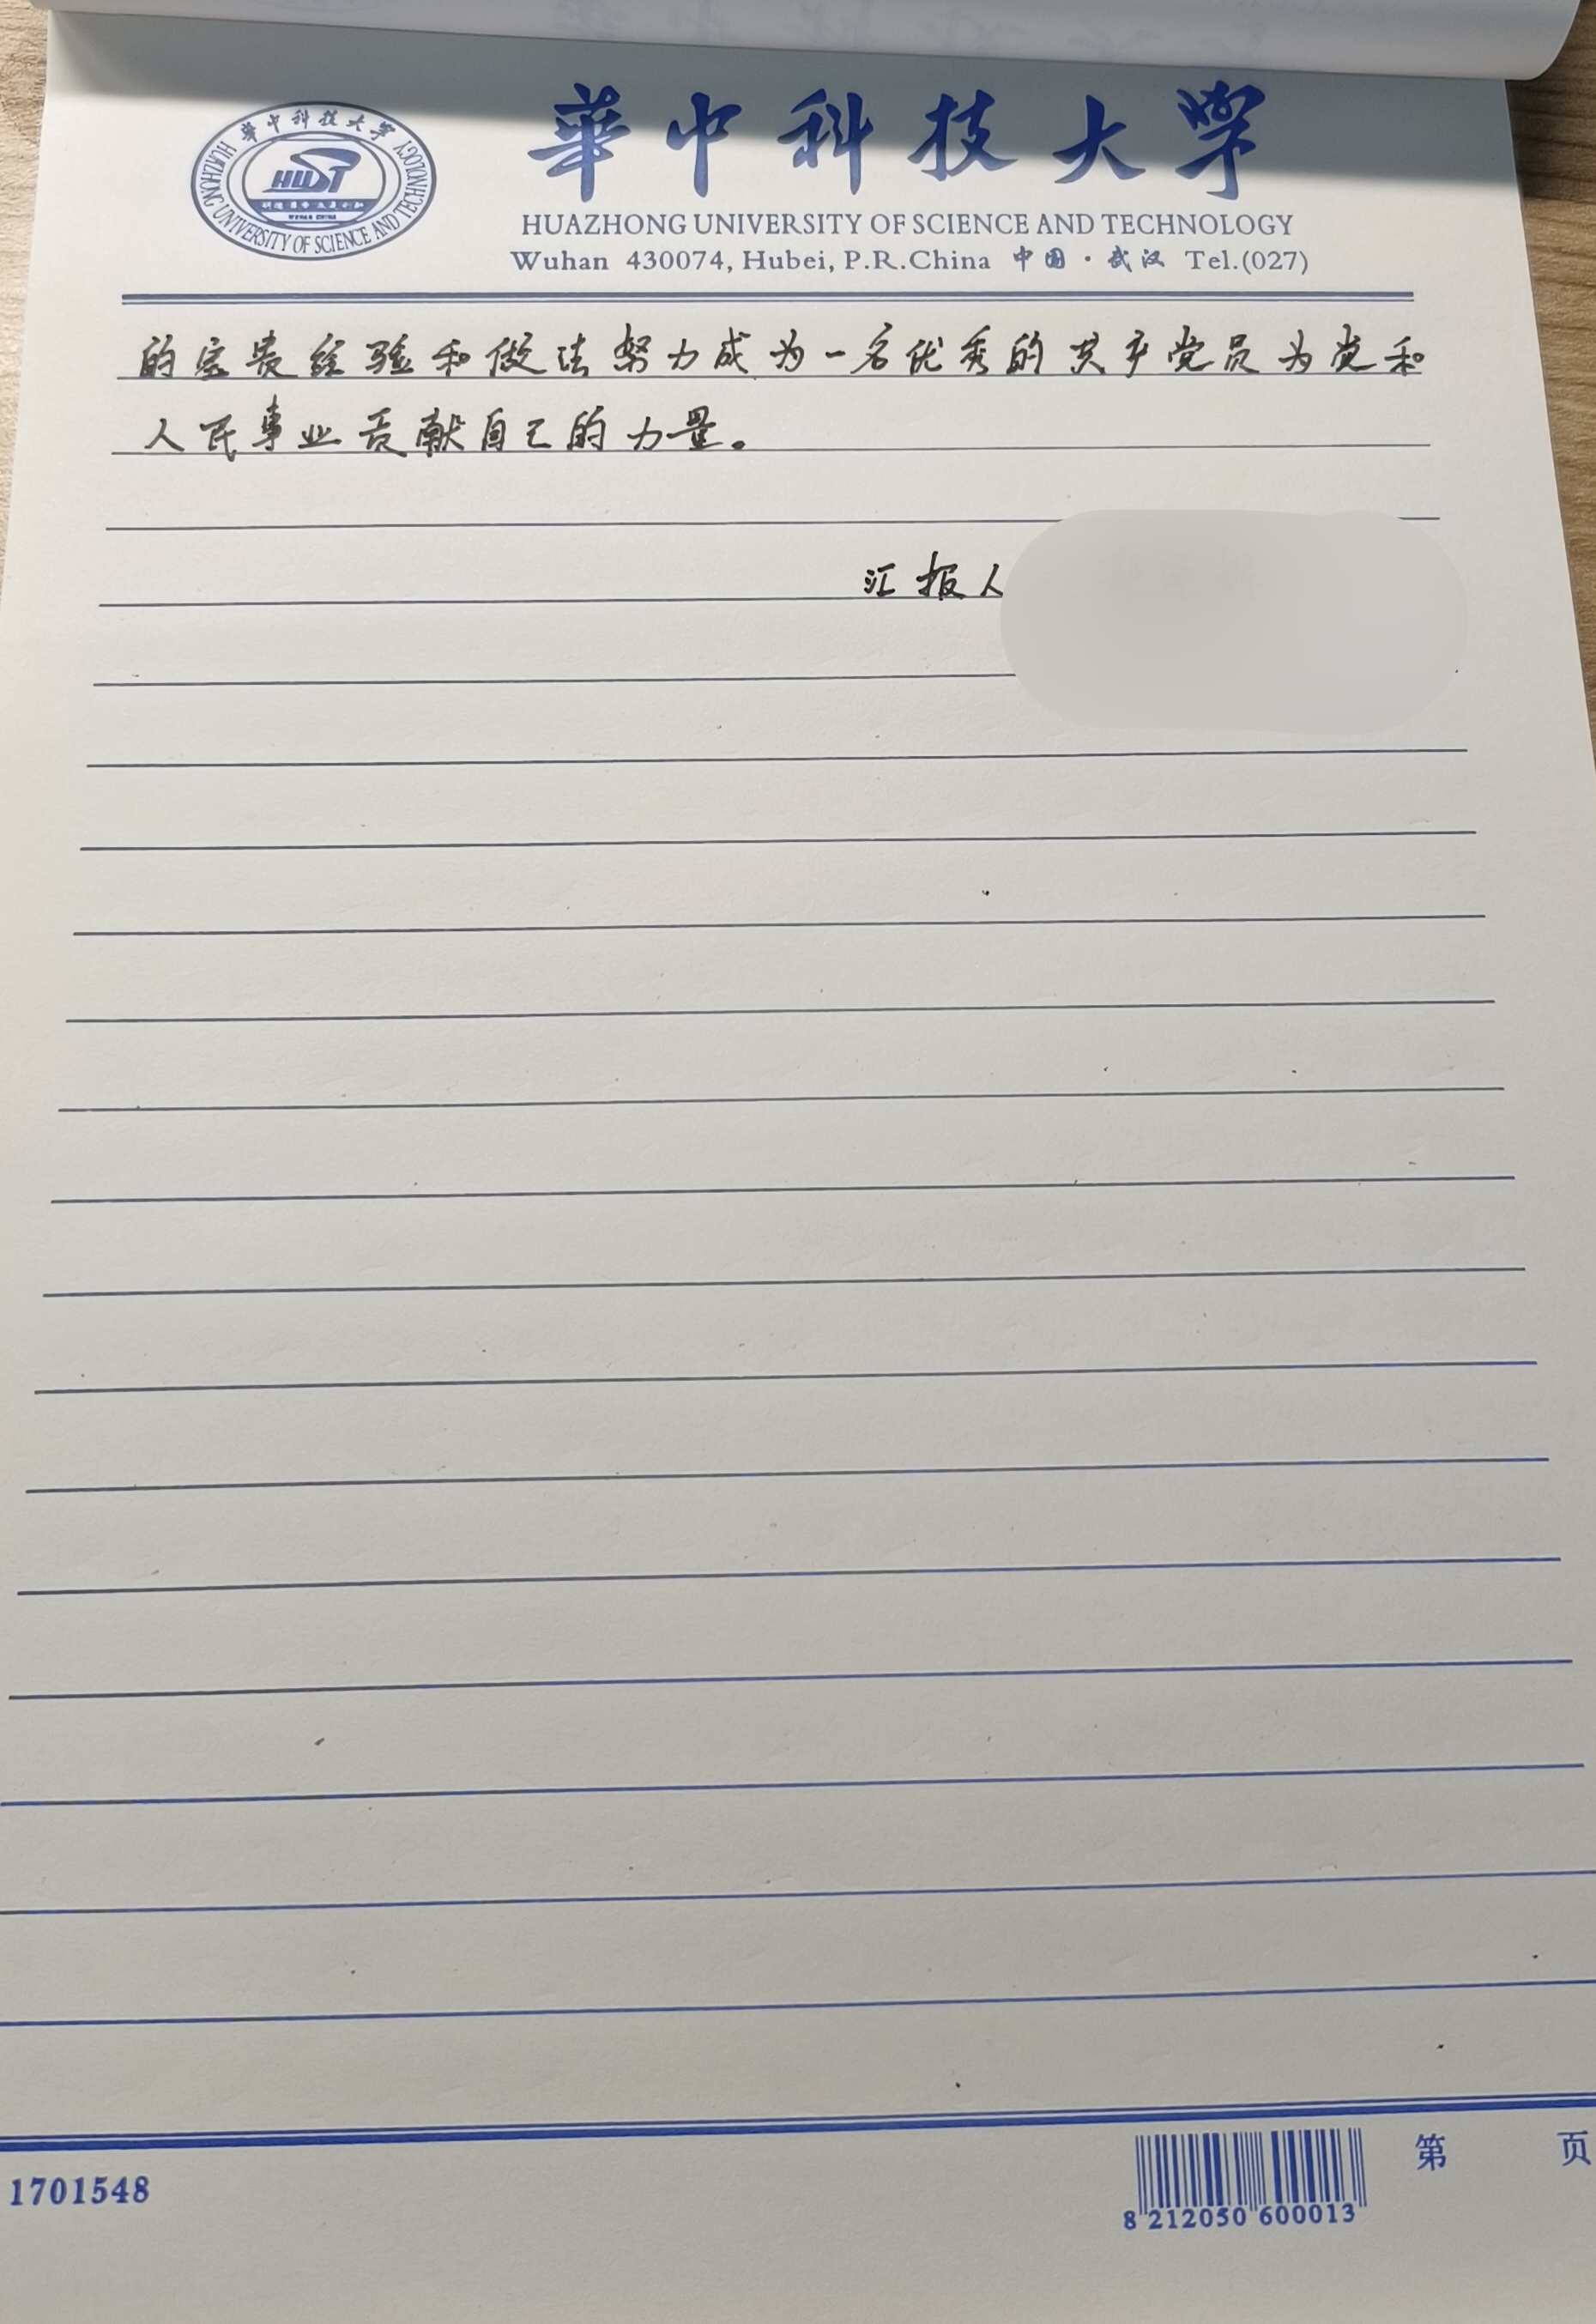 華中科技大学
HUAZHONG UNIVERSITY OF SCIENCE AND TECHNOLOGY
HUST
WUHAN CHINA
華中科技大学
HUAZHONG UNIVERSITY OF SCIENCE AND TECHNOLOGY
Wuhan 430074, Hubei, P.R.China 中国·武汉 Tel.(027)
的宝贵经验和做法努力成为一名优秀的共产党员为党和
人民事业贡献自己的力量。
汇报人
1701548
8 212050 600013
第 页